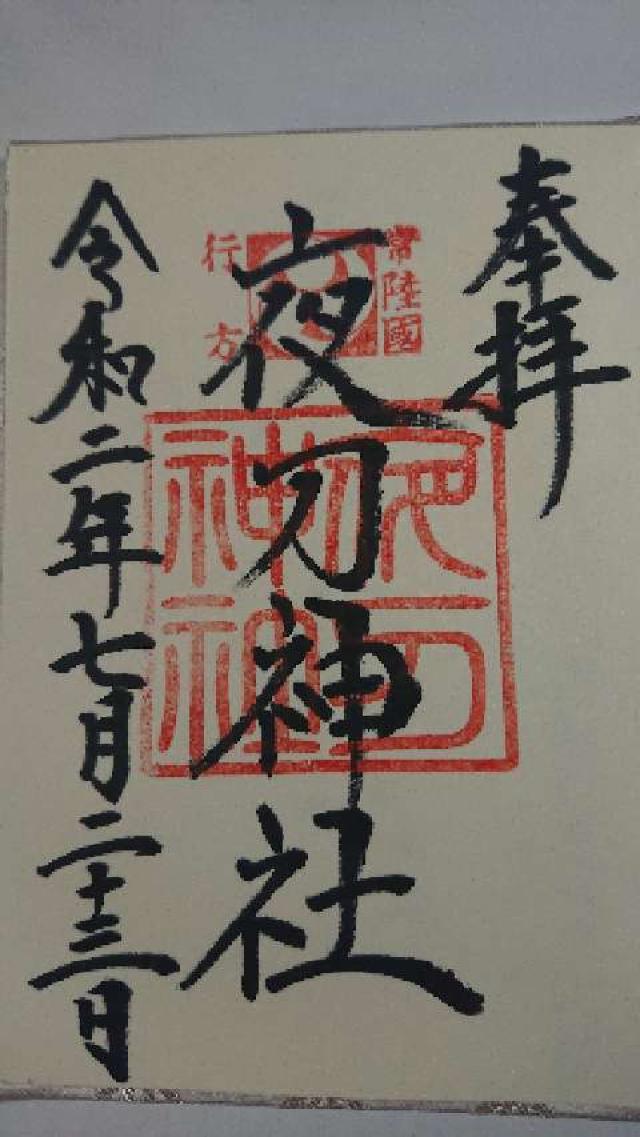 奉拝
常陸國
行方
夜刀神社
夜刀
神社
令和二年七月二十三日